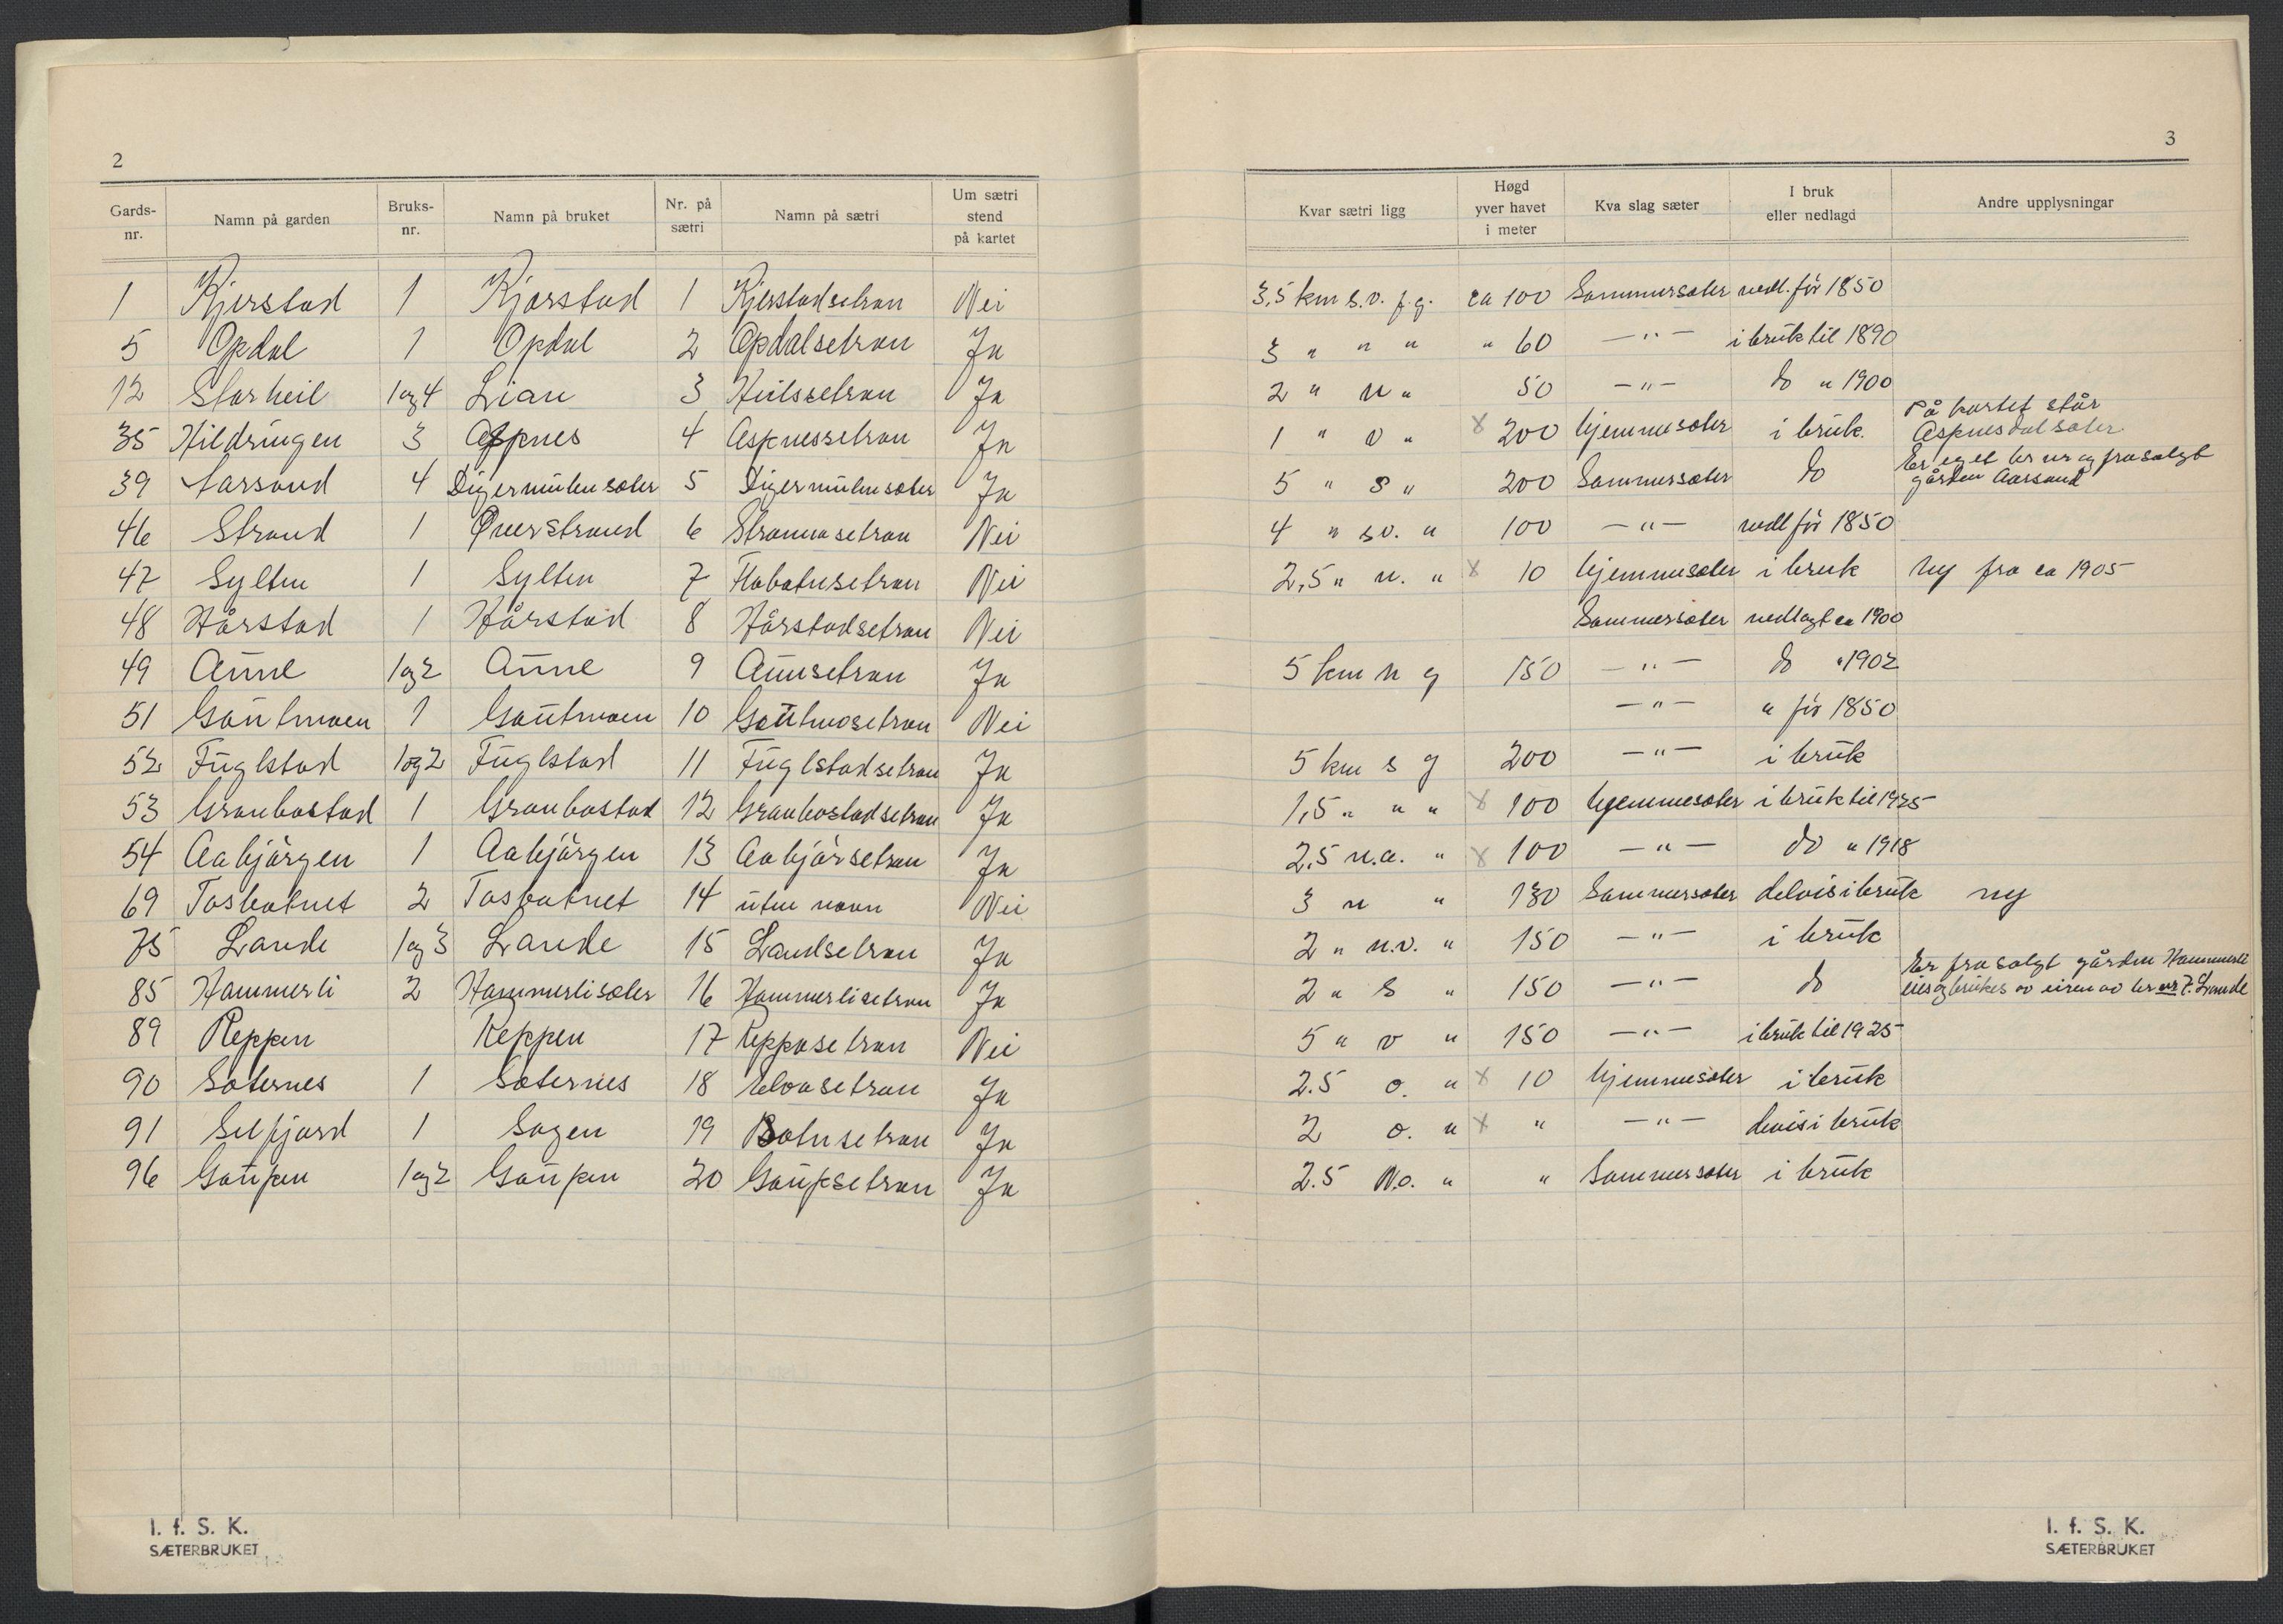 2
Gards-nr. Namn på garden Bruks-nr. Namn på bruket Nr. på sætri Namn på sætri Um sætri stend på kartet
1 Kjerstad 1 Kjærstad 1 Kjerstadsetran Nei
5 Opdal 1 Opdal 2 Opdalsetran Ja
12 Storheil 1 og 4 Lian 3 Heilssetran Ja
35 Hildringen 3 Aspnes 4 Aspnessetran Ja
39 Aarsand 4 Digermulensæter 5 Digermulensæter Ja
46 Strand 1 Øverstrand 6 Strannasetran Nei
47 Sylten 1 Sylten 7 Flabatnsetran Nei
48 Hårstad 1 Hårstad 8 Hårstadsetran Nei
49 Aune 1 og 2 Aune 9 Aunsetran Ja
51 Gautmoen 1 Gautmoen 10 Gautmosetran Nei
52 Fuglstad 1 og 2 Fuglstad 11 Fuglstadsetran Ja
53 Granbostad 1 Granbostad 12 Granbostadsetran Ja
54 Aabjørgen 1 Aabjørgen 13 Aabjørsetran Ja
69 Tosbotnet 2 Tosbotnet 14 uten navn Nei
75 Lande 1 og 3 Lande 15 Landsetran Ja
85 Hammerli 2 Hammerlisæter 16 Hammerlisetran Ja
89 Reppen Reppen 17 Reppasetran Nei
90 Sæternes 1 Sæternes 18 Elvasetran Ja
91 Selfjord 1 Hagen 19 Botnsetran Ja
96 Gaupen 1 og 2 Gaupen 20 Gaupsetran Ja
I. f. S. K.
SÆTERBRUKET
3
Kvar sætri ligg Høgd yver havet i meter Kva slag sæter I bruk eller nedlagd Andre upplysningar
3,5 km s.v. f.g. ca 100 Sommersæter nedl. før 1850
3 " " " " 60 —"— i bruk til 1890
2 " n " 50 —"— do " 1900
1 " v " x 200 hjemmesæter i bruk. På kartet står Aspnesdalsæter
5 " s " 200 Sommersæter do Er eget br nr og frasolgt gården Aarsand
4 " sv. " 100 —"— nedl før 1850
2,5 " n. " x 10 hjemmesæter i bruk ny fra ca 1905
Sommersæter nedlagt ca 1900
5 km n g 150 —"— do " 1902
—"— " før 1850
5 km s g 200 —"— i bruk
1,5 " " " x 100 hjemmesæter i bruk til 1925
2,5 n.a. " x 100 —"— do " 1918
3 n " 130 Sommersæter delvis i bruk ny
2 " n.v. " 150 —"— i bruk
2 " s " 150 —"— do Er frasolgt gården Hammerli eies og brukes av eieren av br nr 7. Lande
5 " v " 150 —"— i bruk til 1925
2.5 o. " x 10 hjemmesæter i bruk
2 o. " x " —"— delvis i bruk
2.5 N.o. " " Sommersæter i bruk
I. f. S. K.
SÆTERBRUKET